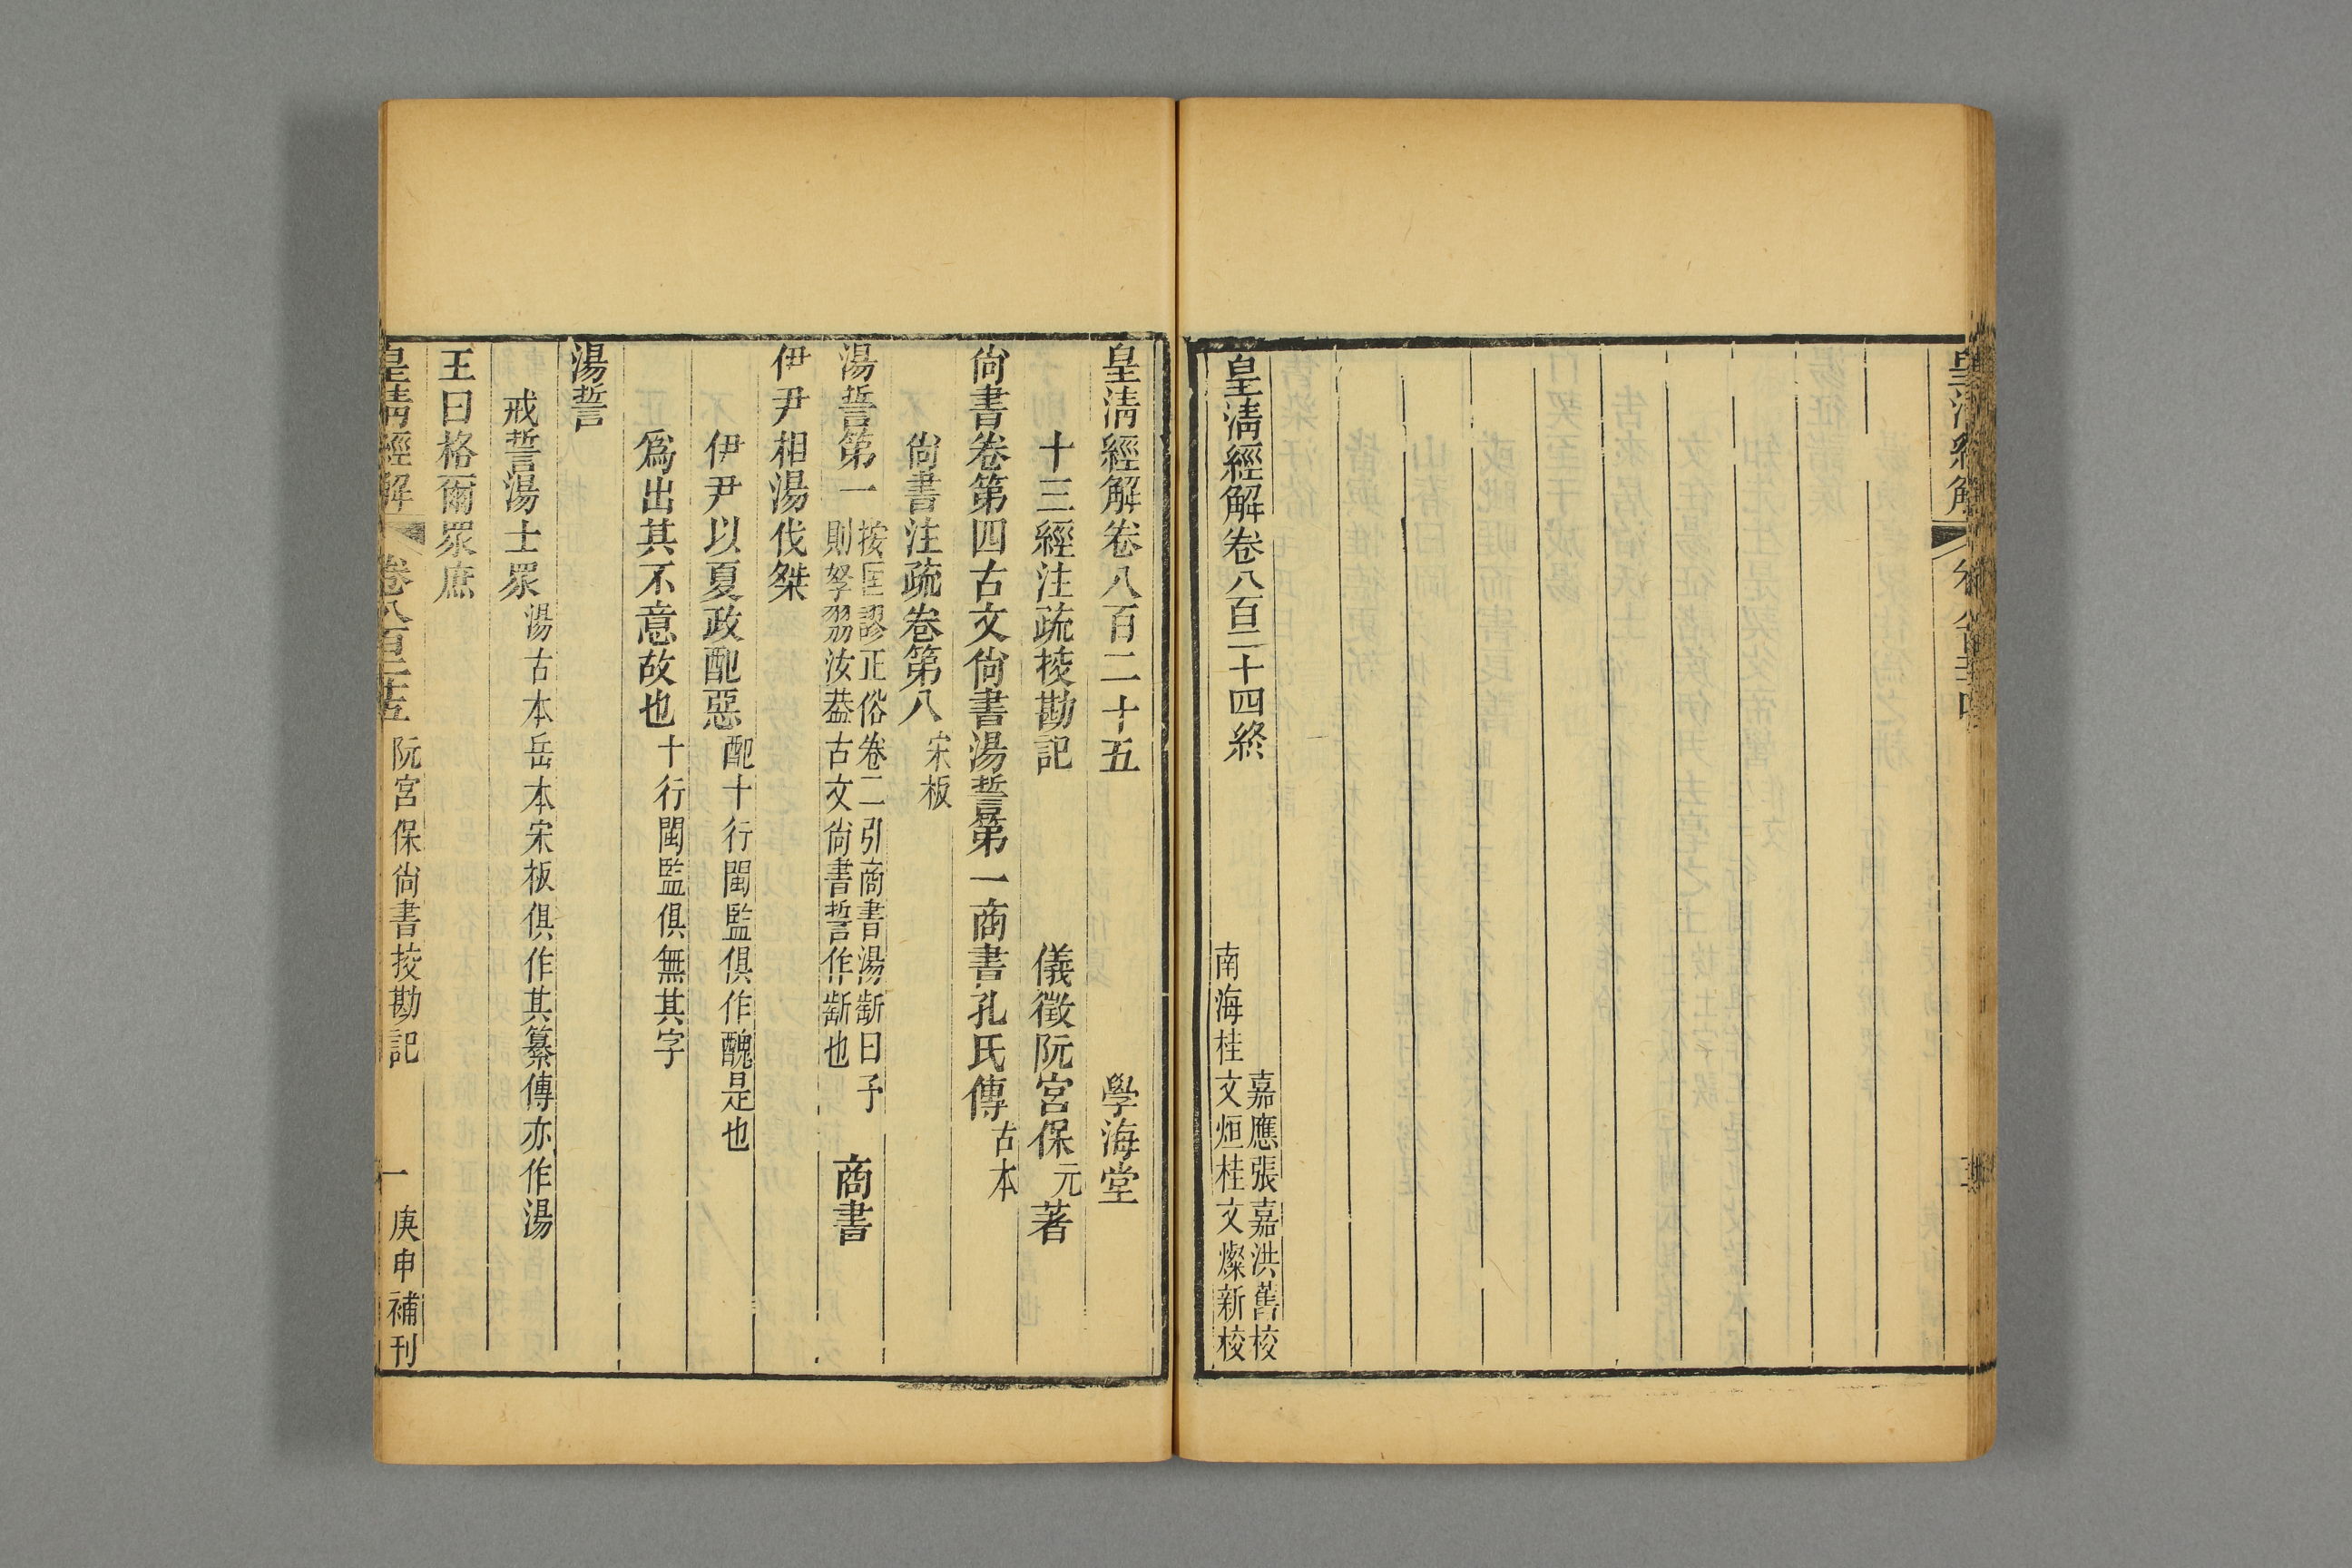 皇清經解卷八百二十四終
嘉應張嘉洪舊校
南海桂文烜桂文燦新校
皇清經解卷八百二十五 學海堂
十三經注疏挍勘記 儀徵阮宮保元著
尙書卷第四古文尙書湯誓第一商書孔氏傳古本
尙書注疏卷第八宋板
湯誓第一 按匡謬正俗卷二引商書湯斮曰予則孥翏汝葢古文尙書誓作斮也 商書
伊尹相湯伐桀
伊尹以夏政配惡 配十行閩監俱作醜是也
爲出其不意故也 十行閩監俱無其字
湯誓
戒誓湯士眾 湯古本岳本宋板俱作其纂傳亦作湯
王曰格爾眾庶
皇清經解 卷八百二十五 阮宮保尙書挍勘記 一 庚申補刊